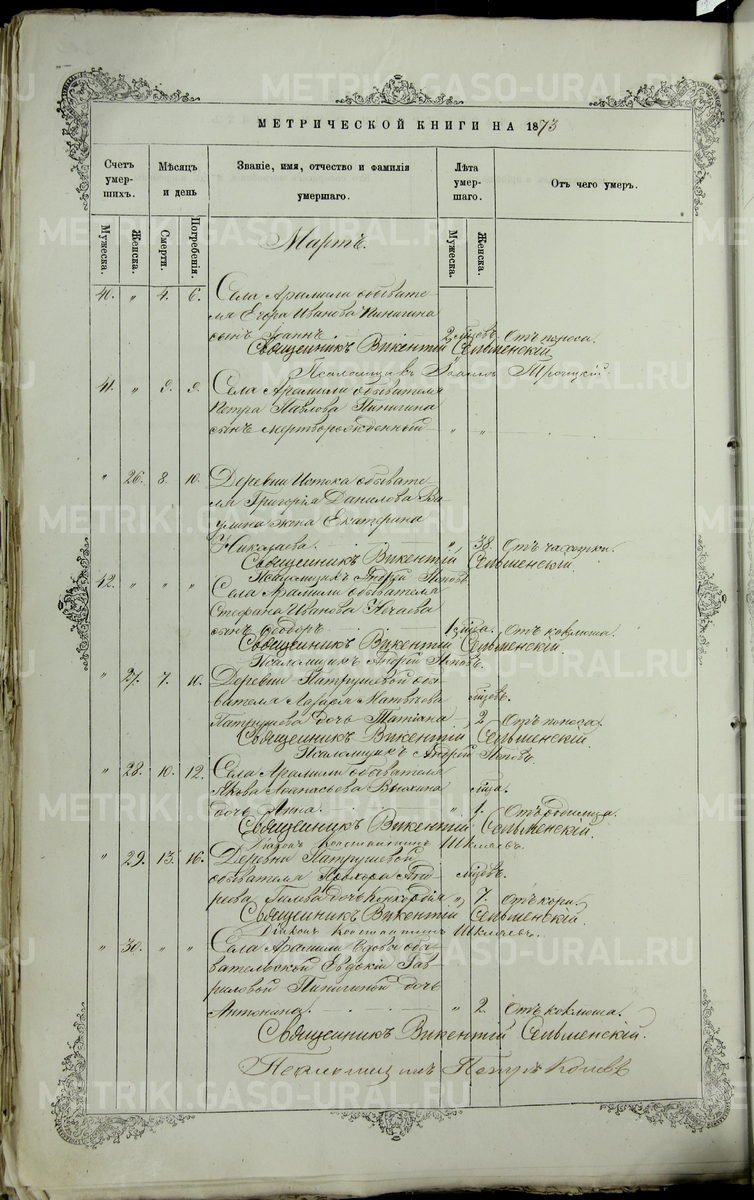 МЕТРИЧЕСКОЙ КНИГИ НА 1873
Счетъ умер-шихъ. Мѣсяцъ и день Званіе, имя, отчество и фамилія умершаго. Лѣта умер-шаго. Отъ чего умеръ.
Мужеска. Женска. Смерти. Погребенія. Мужеска. Женска.
Мартъ.
40. " 4. 6. Села Арамила обывате-
ля Егора Иванова Пинигина
сынъ Іоаннъ 2 мѣсяцовъ Отъ поноса.
Священникъ Викентій Сельменскій
Псаломщикъ Троицкій
41. " 9. 9. Села Арамили обывателя
Петра Павлова Пинигина
сынъ мертворожденный " "
" 26. 8. 10. Деревни Истока обывате-
ля Григорія Данилова Ва-
улина жена Екатерина
Николаева. " 38. Отъ чахотки.
Священникъ Викентій Сельменскій
Псаломщикъ Андрей Поповъ
42. " " " Села Арамили обывателя
Стефана Иванова Нечаева
сынъ Ѳеодоръ 1 года. Отъ коклюша.
Священникъ Викентій Сельменскій.
Псаломщикъ Андрей Поповъ.
" 27. 7. 10. Деревни Патрушевой обы-
вателя Лазаря Матвѣева мѣсяцовъ.
Патрушева дочь Татіана " 2 Отъ поноса.
Священникъ Викентій Сельменскій.
Псаломщикъ Андрей Поповъ.
" 28. 10. 12. Села Арамили обывателя
Якова Аѳанасьева года.
дочь Анна. " 1. Отъ родимца.
Священникъ Викентій Сельменскій.
Діаконъ Константинъ Шкляевъ.
" 29. 13. 16. Деревни Патрушевой
обывателя Анд- мѣсяцовъ.
реева Гилева дочь Конкордія " 7. Отъ кори.
Священникъ Викентій Сельменскій.
Діаконъ Константинъ Шкляевъ.
" 30. " " Села Арамили вдовы обы-
вательской Евдокіи Гав-
риловой Пинигиной дочь
Антонина. " 2. Отъ коклюша.
Священникъ Викентій Сельменскій.
Псаломщикъ Петръ
METRIKI.GASO-URAL.RU